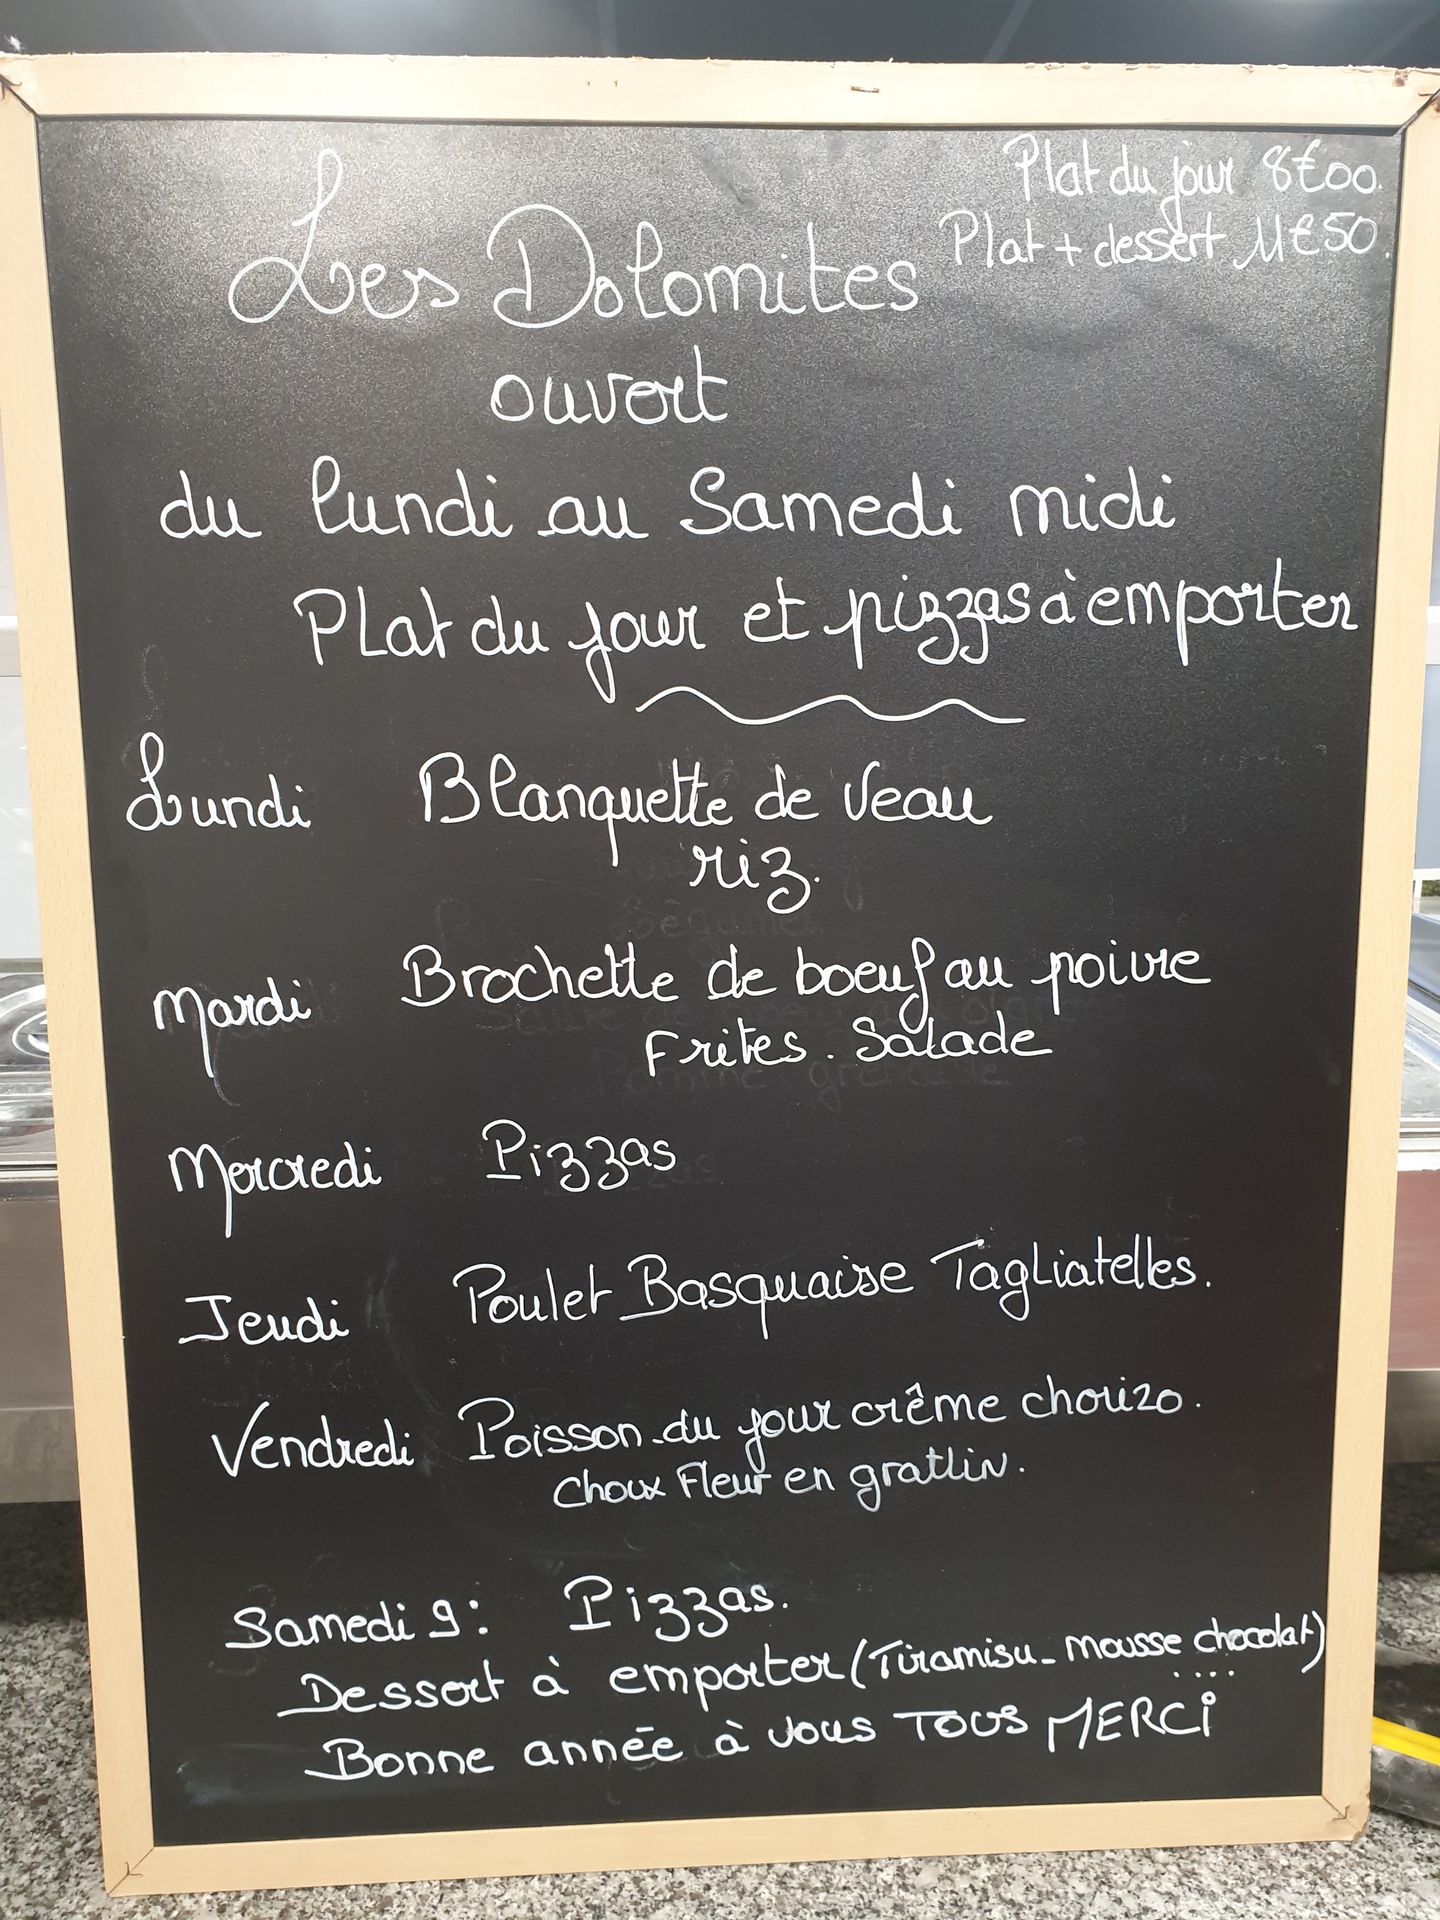 Plat du jour 8€00.
Plat + dessert 11€50.
Les Dolomites
ouvert
du lundi au Samedi midi
Plat du jour et pizzas à emporter
Lundi Blanquette de veau
riz.
Mardi Brochette de boeuf au poivre
Frites. Salade
Mercredi Pizzas
Jeudi Poulet Basquaise Tagliatelles.
Vendredi Poisson du jour crême chorizo.
choux Fleur en gratin.
Samedi 9: Pizzas.
Dessert à emporter (Tiramisu - mousse chocolat)
....
Bonne année à vous TOUS MERCi